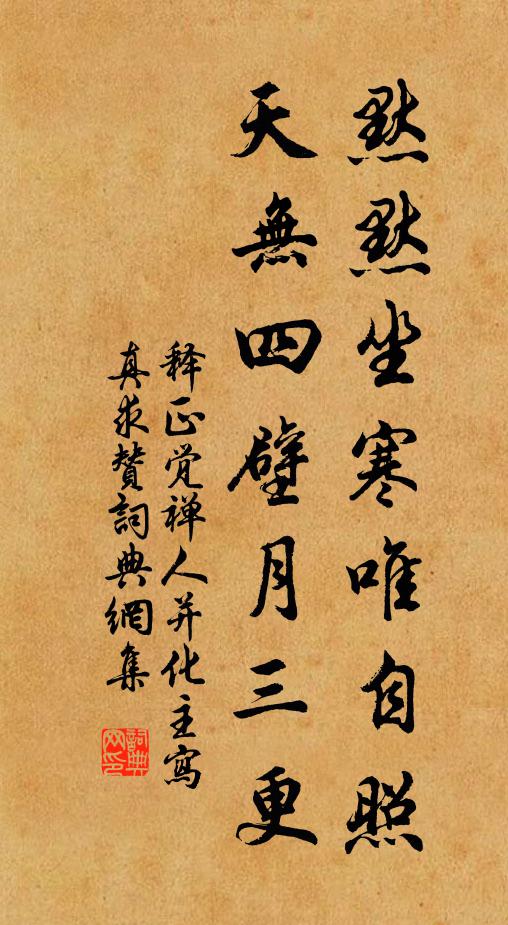 默默坐寒唯自照
天無四壁月三更
释正觉禅人并化主寫
真求赞詞典網集
詞典网印